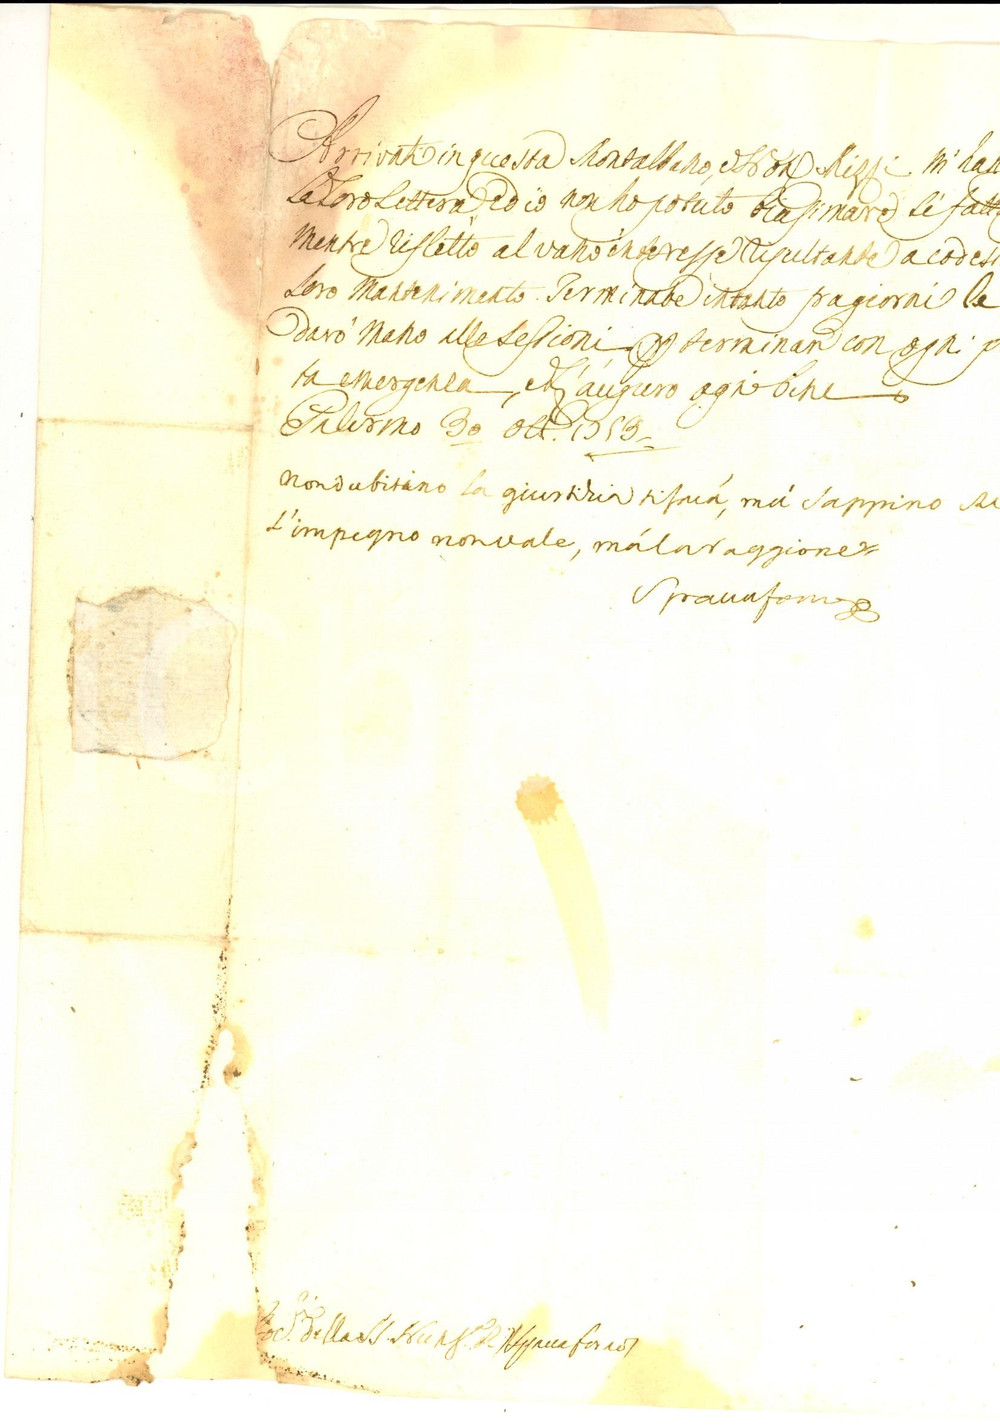 Arrivati in questa Montalbano, e Don Mizzi m'han
la loro lettera, ed io non ho potuto biasimare le fatt
mentre rifletto al vano interesse risultante a codesti
loro mantenimento. Terminate intanto fra giorni le
darò mano alle sessioni terminar con ogni p
ta emergenza, e l'auguro ogni bene
Palermo 30 ott.
non dubitino la giustizia si farà, mà sappino
l'impegno non vale, mà la raggione
Spaccaforno
della Spaccaforno